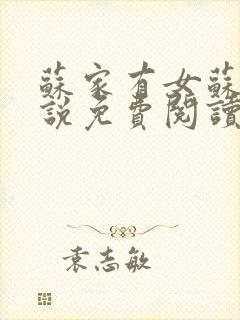 蘇家有女蘇
說免費閱讀
袁志敏